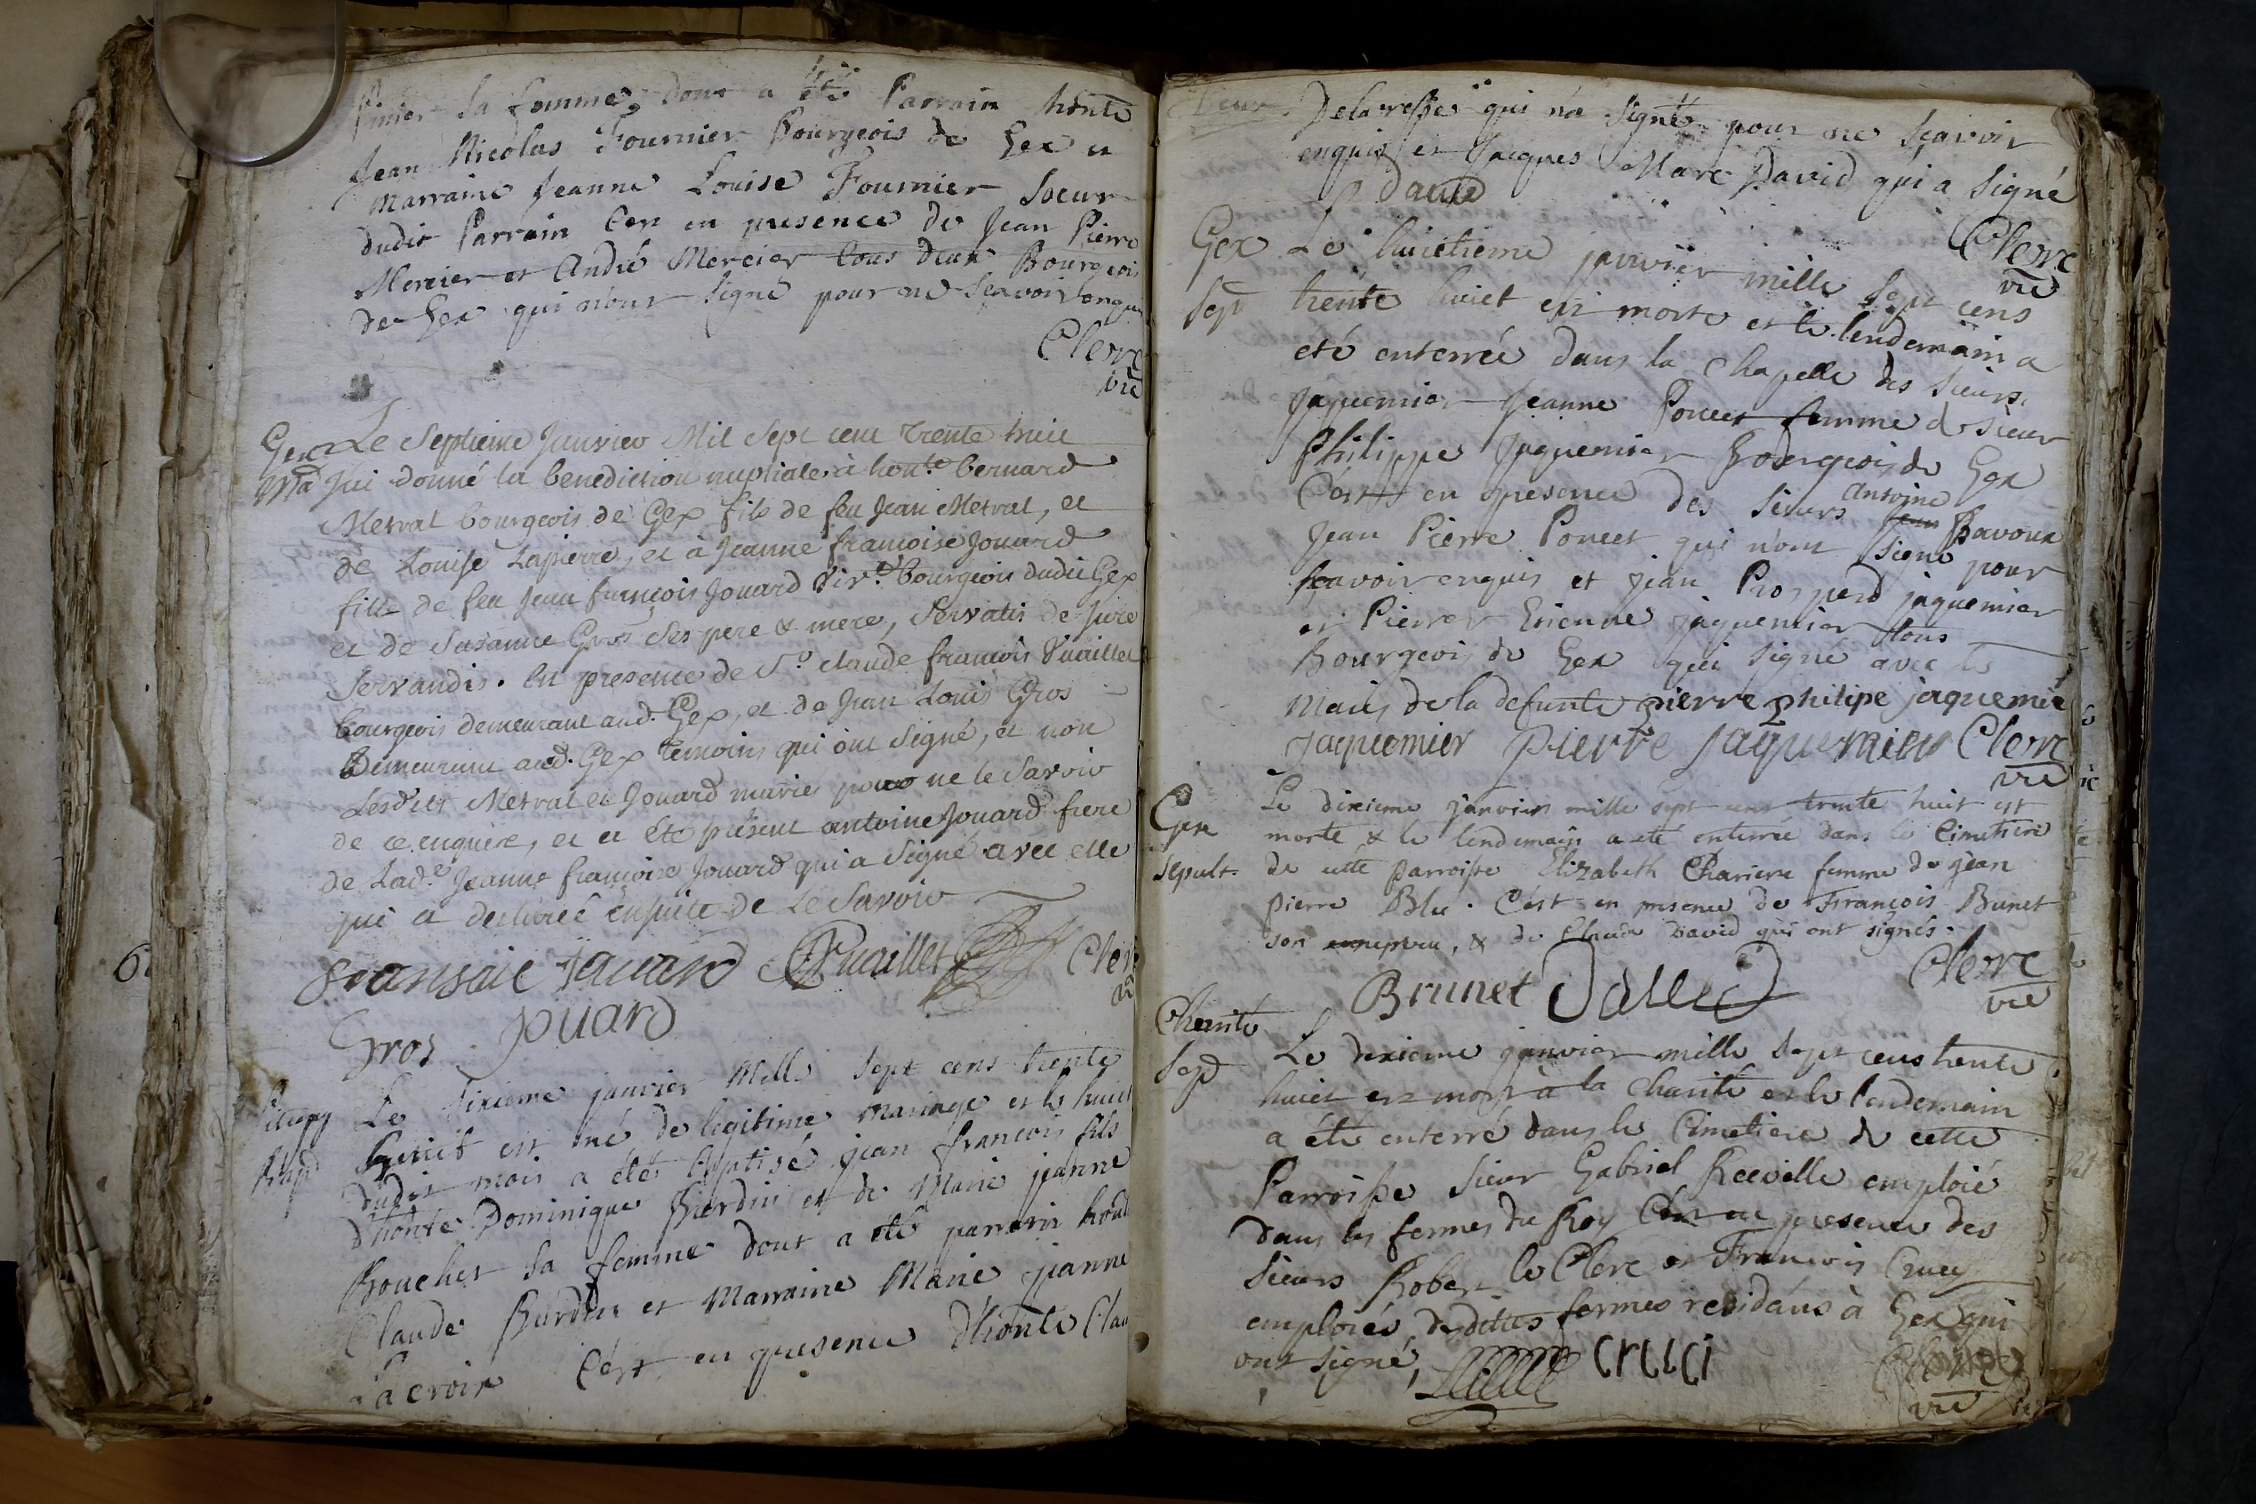 sa femme, dont a été Parrain honte
Jean Nicolas Fournier Bourgeois de Gex et
marraine Jeanne Louise Fournier soeur
dudit Parrain C'est en presence de Jean Pierre
Mercier et André Mercier tous deux Bourgeois
de Gex qui n'ont signé pour ne sçavoir enquis
Clerc
vic
Gex Le septieme Janvier Mil sept cent trente huit
Mar J'ai donné la benediction nuptiale à hon.te bernard
Metral bourgeois de Gex fils de feu Jean Metral, et
de Louise Lapierre, et à Jeanne françoise Jouard
fille de feu Jean françois Jouard bourgeois dudit Gex
et de Susanne Gros ses pere & mere, servatis de jure
servandis. en presence de S.r claude françois Vuaillet
bourgeois demeurant aud. Gex, et de Jean Louis Gros
demeurant aud. Gex temoins qui ont signé, et non
lesdits Metral et Jouard mariés pour ne le savoir
de ce enquire, et a été présent antoine Jouard frere
de Lad.e Jeanne françoise Jouard qui a signé avec elle
qui a declaré ensuite de le savoir
fransoise Jouard Vuaillet Clerc
vic
Gros Jouard
Le sixieme janvier mille sept cens trente
Bap huict est né de legitime mariage et le huict
dudit mois a été baptisé jean françois fils
d'honte Dominique Burdin et de Marie jeanne
Bouchet sa femme dont a été parrain honte
Claude Burdin et Marraine Marie jeanne
Lacroix C'est en presence d'honte Clau
Delavesse qui n'a signé pour ne sçavoir
enquis et Jacques Marc David qui a signé
David
Clerc
vic
Gex Le huictieme janvier mille sept cens
Sept trente huict est morte et le lendemain a
eté enterrée dans la chapelle des sieurs
Jaquemier Jeanne Poncet femme de sieur
Philippe Jaquemier Bourgeois de Gex
C'est en presence des sieurs Antoine Pavoux
Jean Pierre Poncet qui n'ont signé pour
sçavoir enquis et jean Prosperd jaquemier
et Pierre Etienne jaquemier tous
Bourgeois de Gex qui signé avec le
maris de la defunte pierre philipe jaquemié
Jaquemier pierre Jaquemier Clerc
vic
Gex Le dixieme janvier mille sept cens trente huit est
morte & le lendemain a eté enterrée dans le Cimetiere
sepult. de cette parroisse Elizabeth Chariere femme de jean
pierre Blu. C'est en presence de François Brunet
son nepveu, & de Claude David qui ont signés.
Brunet David Clerc
vic
Charité
Sep Le dixieme janvier mille sept cens trente
huict est mort à la Charité et le lendemain
a été enterré dans le Cimetiere de cette
Parroisse sieur Gabriel Recville emploié
dans les fermes du Roy C'est en presence des
sieurs Robert le Clerc et François Crucy
emploiés desdittes fermes residans à Gex qui
ont signé, crucci
Clerc
vic